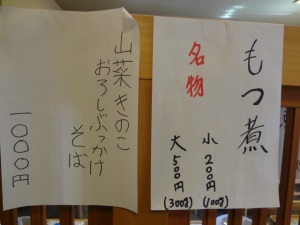 もつ煮
名物
小 200円 (100g)
大 500円 (300g)
山菜きのこ
おろしぶっかけ
そば
一〇〇〇円